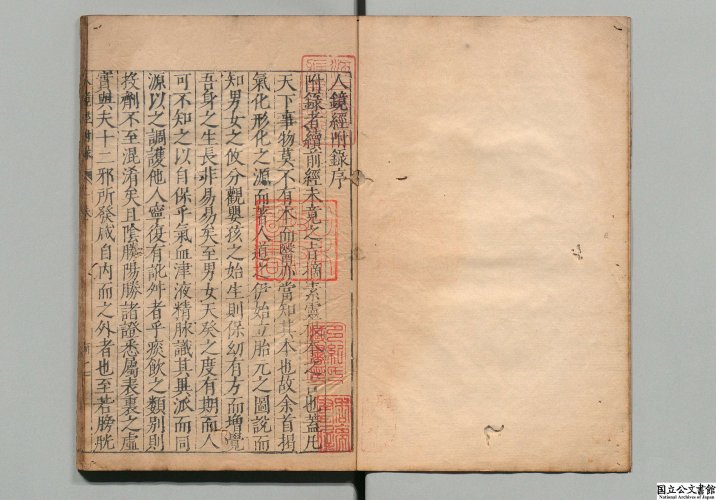 人鏡經附錄序
附錄者續前經未竟之言摘素靈本之言也蓋凡
天下事物莫不有本而醫亦當知其本也故余首揭
氣化形化之源而著人道之伊始立胎元之圖說而
知男女之攸分觀嬰孩之始生則保幼有方而增覺
吾身之生長非易易矣至男女天癸之度有期而人
可不知之以自保乎氣血津液精脉識其異派而同
源以之調護他人寧復有訛舛者乎痰飲之類別則
投劑不至混淆矣且陰勝陽勝諸證悉屬表裏之虛
實與夫十二邪所發咸自內而之外者也至若膀胱
人鏡經附錄
序
国立公文書館
National Archives of Japan